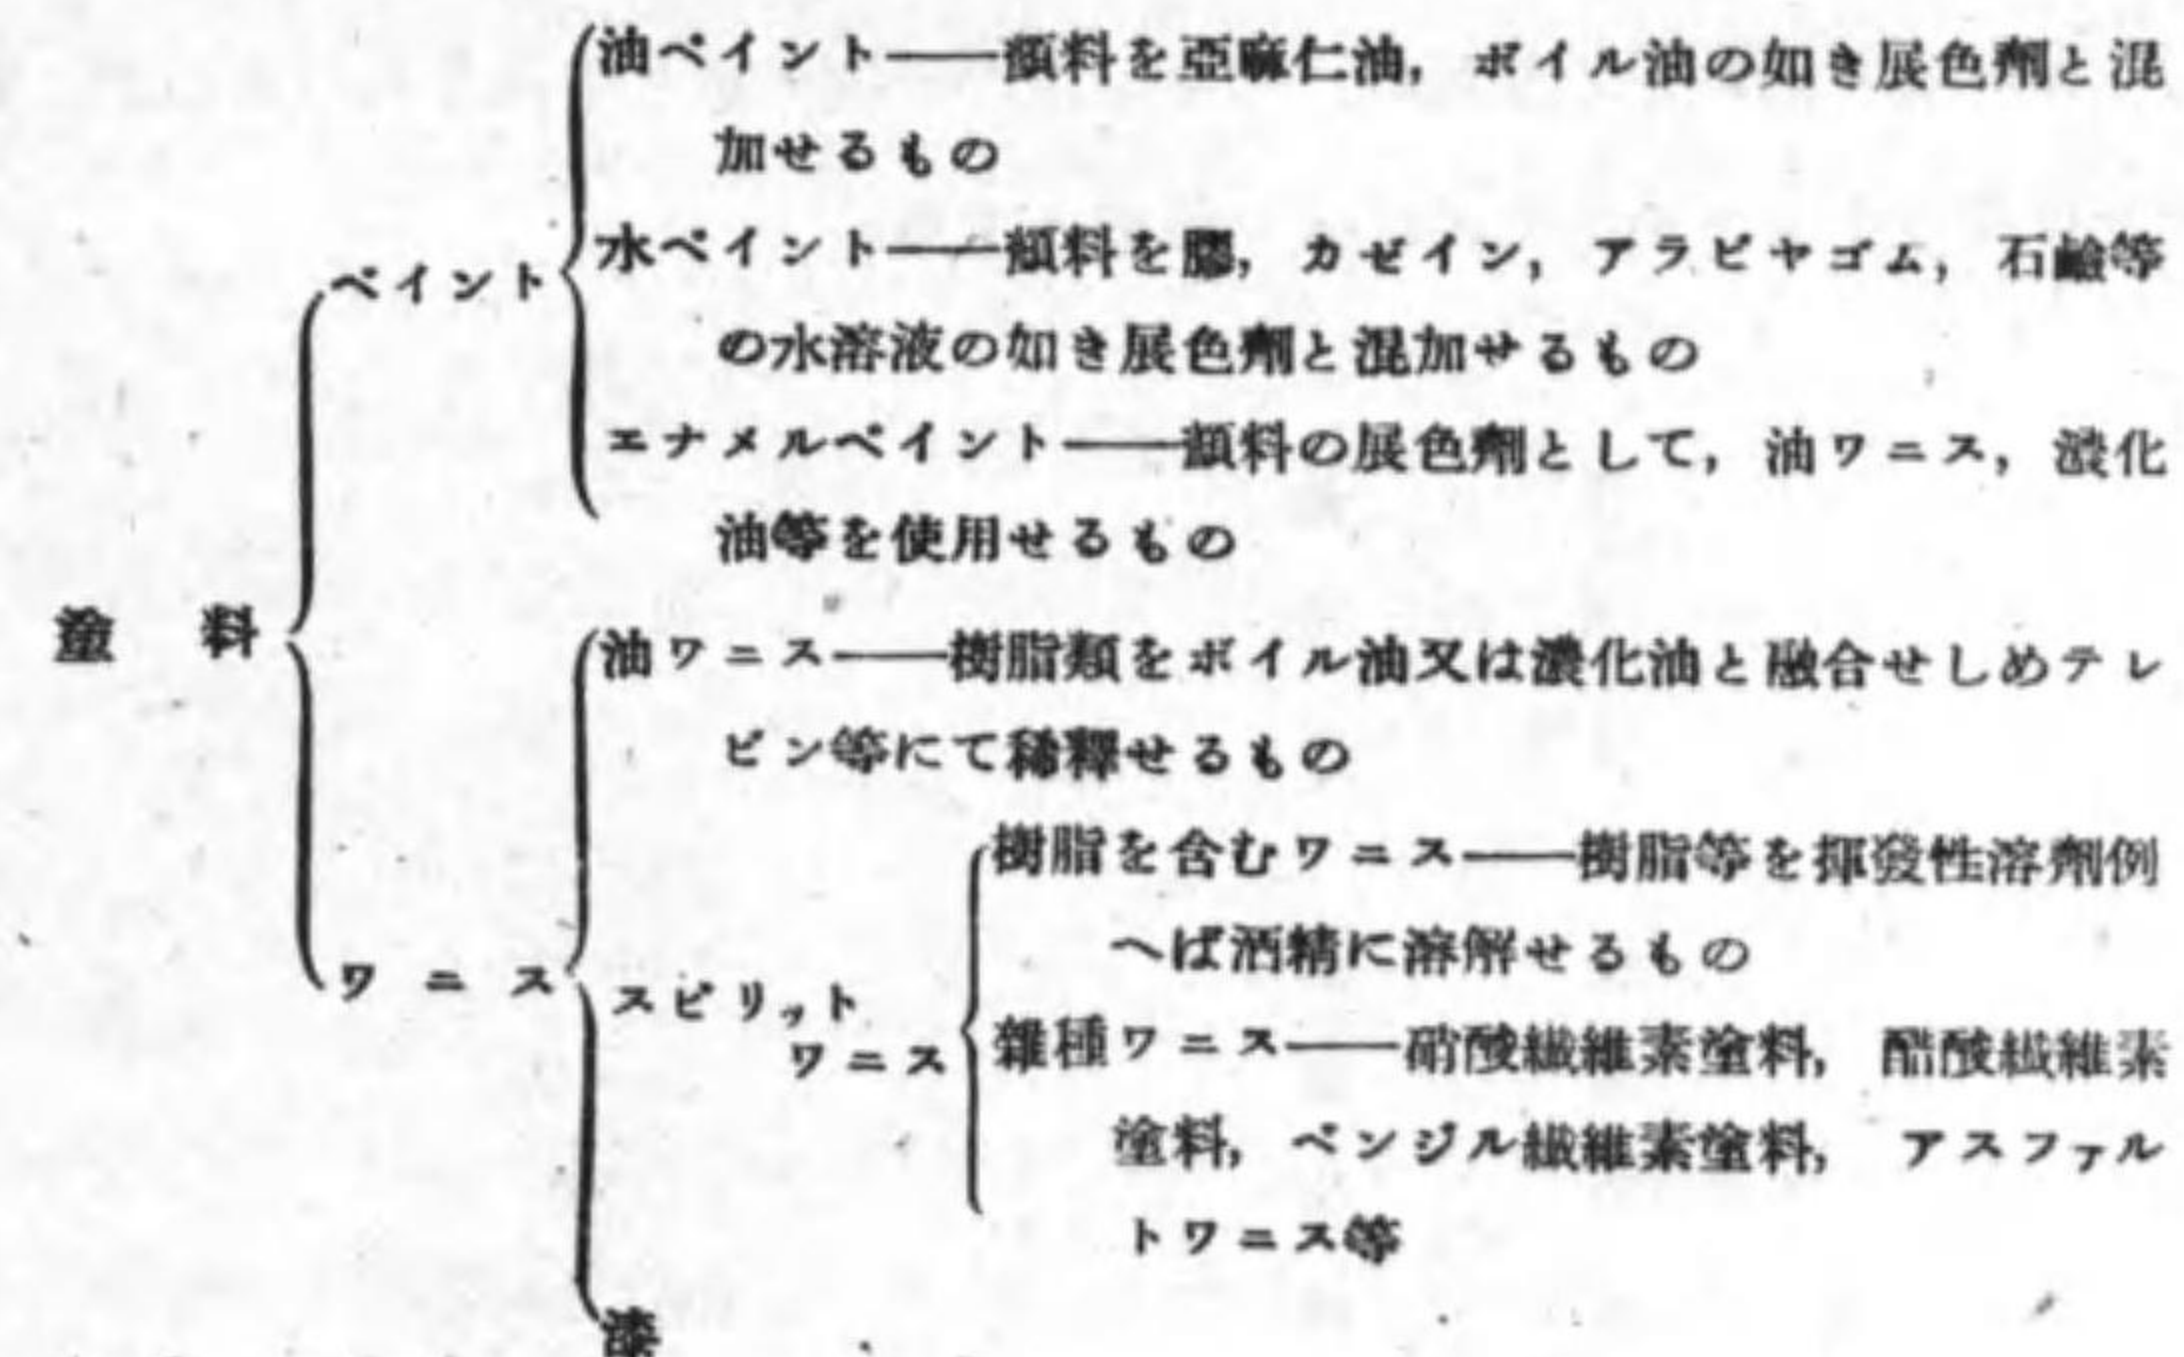 塗料
ペイント
油ペイント――顔料を亞麻仁油，ボイル油の如き展色劑と混
加せるもの
水ペイント――顔料を膠，カゼイン，アラビヤゴム，石鹼等
の水溶液の如き展色劑と混加せるもの
エナメルペイント――顔料の展色劑として，油ワニス，濃化
油等を使用せるもの
ワニス
油ワニス――樹脂類をボイル油又は濃化油と融合せしめテレ
ビン等にて稀釋せるもの
スピリット
ワニス
樹脂を含むワニス――樹脂等を揮發性溶劑例
へば酒精に溶解せるもの
雜種ワニス――硝酸纎維素塗料，醋酸纎維素
塗料，ベンジル纎維素塗料，アスファル
トワニス等
漆